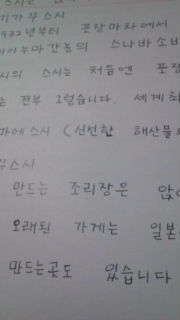 기가꾸스시
1932년부터 포장마차에서
이이누마간농의 스나바소바
시의 스시는 처음엔 포장
는 전부 그렇습니다. 세계최
마에스시 (신선한 해산물
꾸스시
만드는 조리장은 앉
오래된 가게는 일본
만드는곳도 있습니다